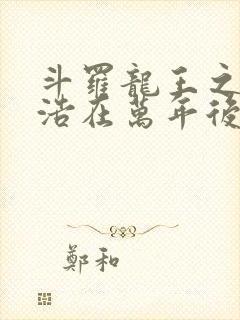 斗羅龍王之
浩在萬年後
鄭和